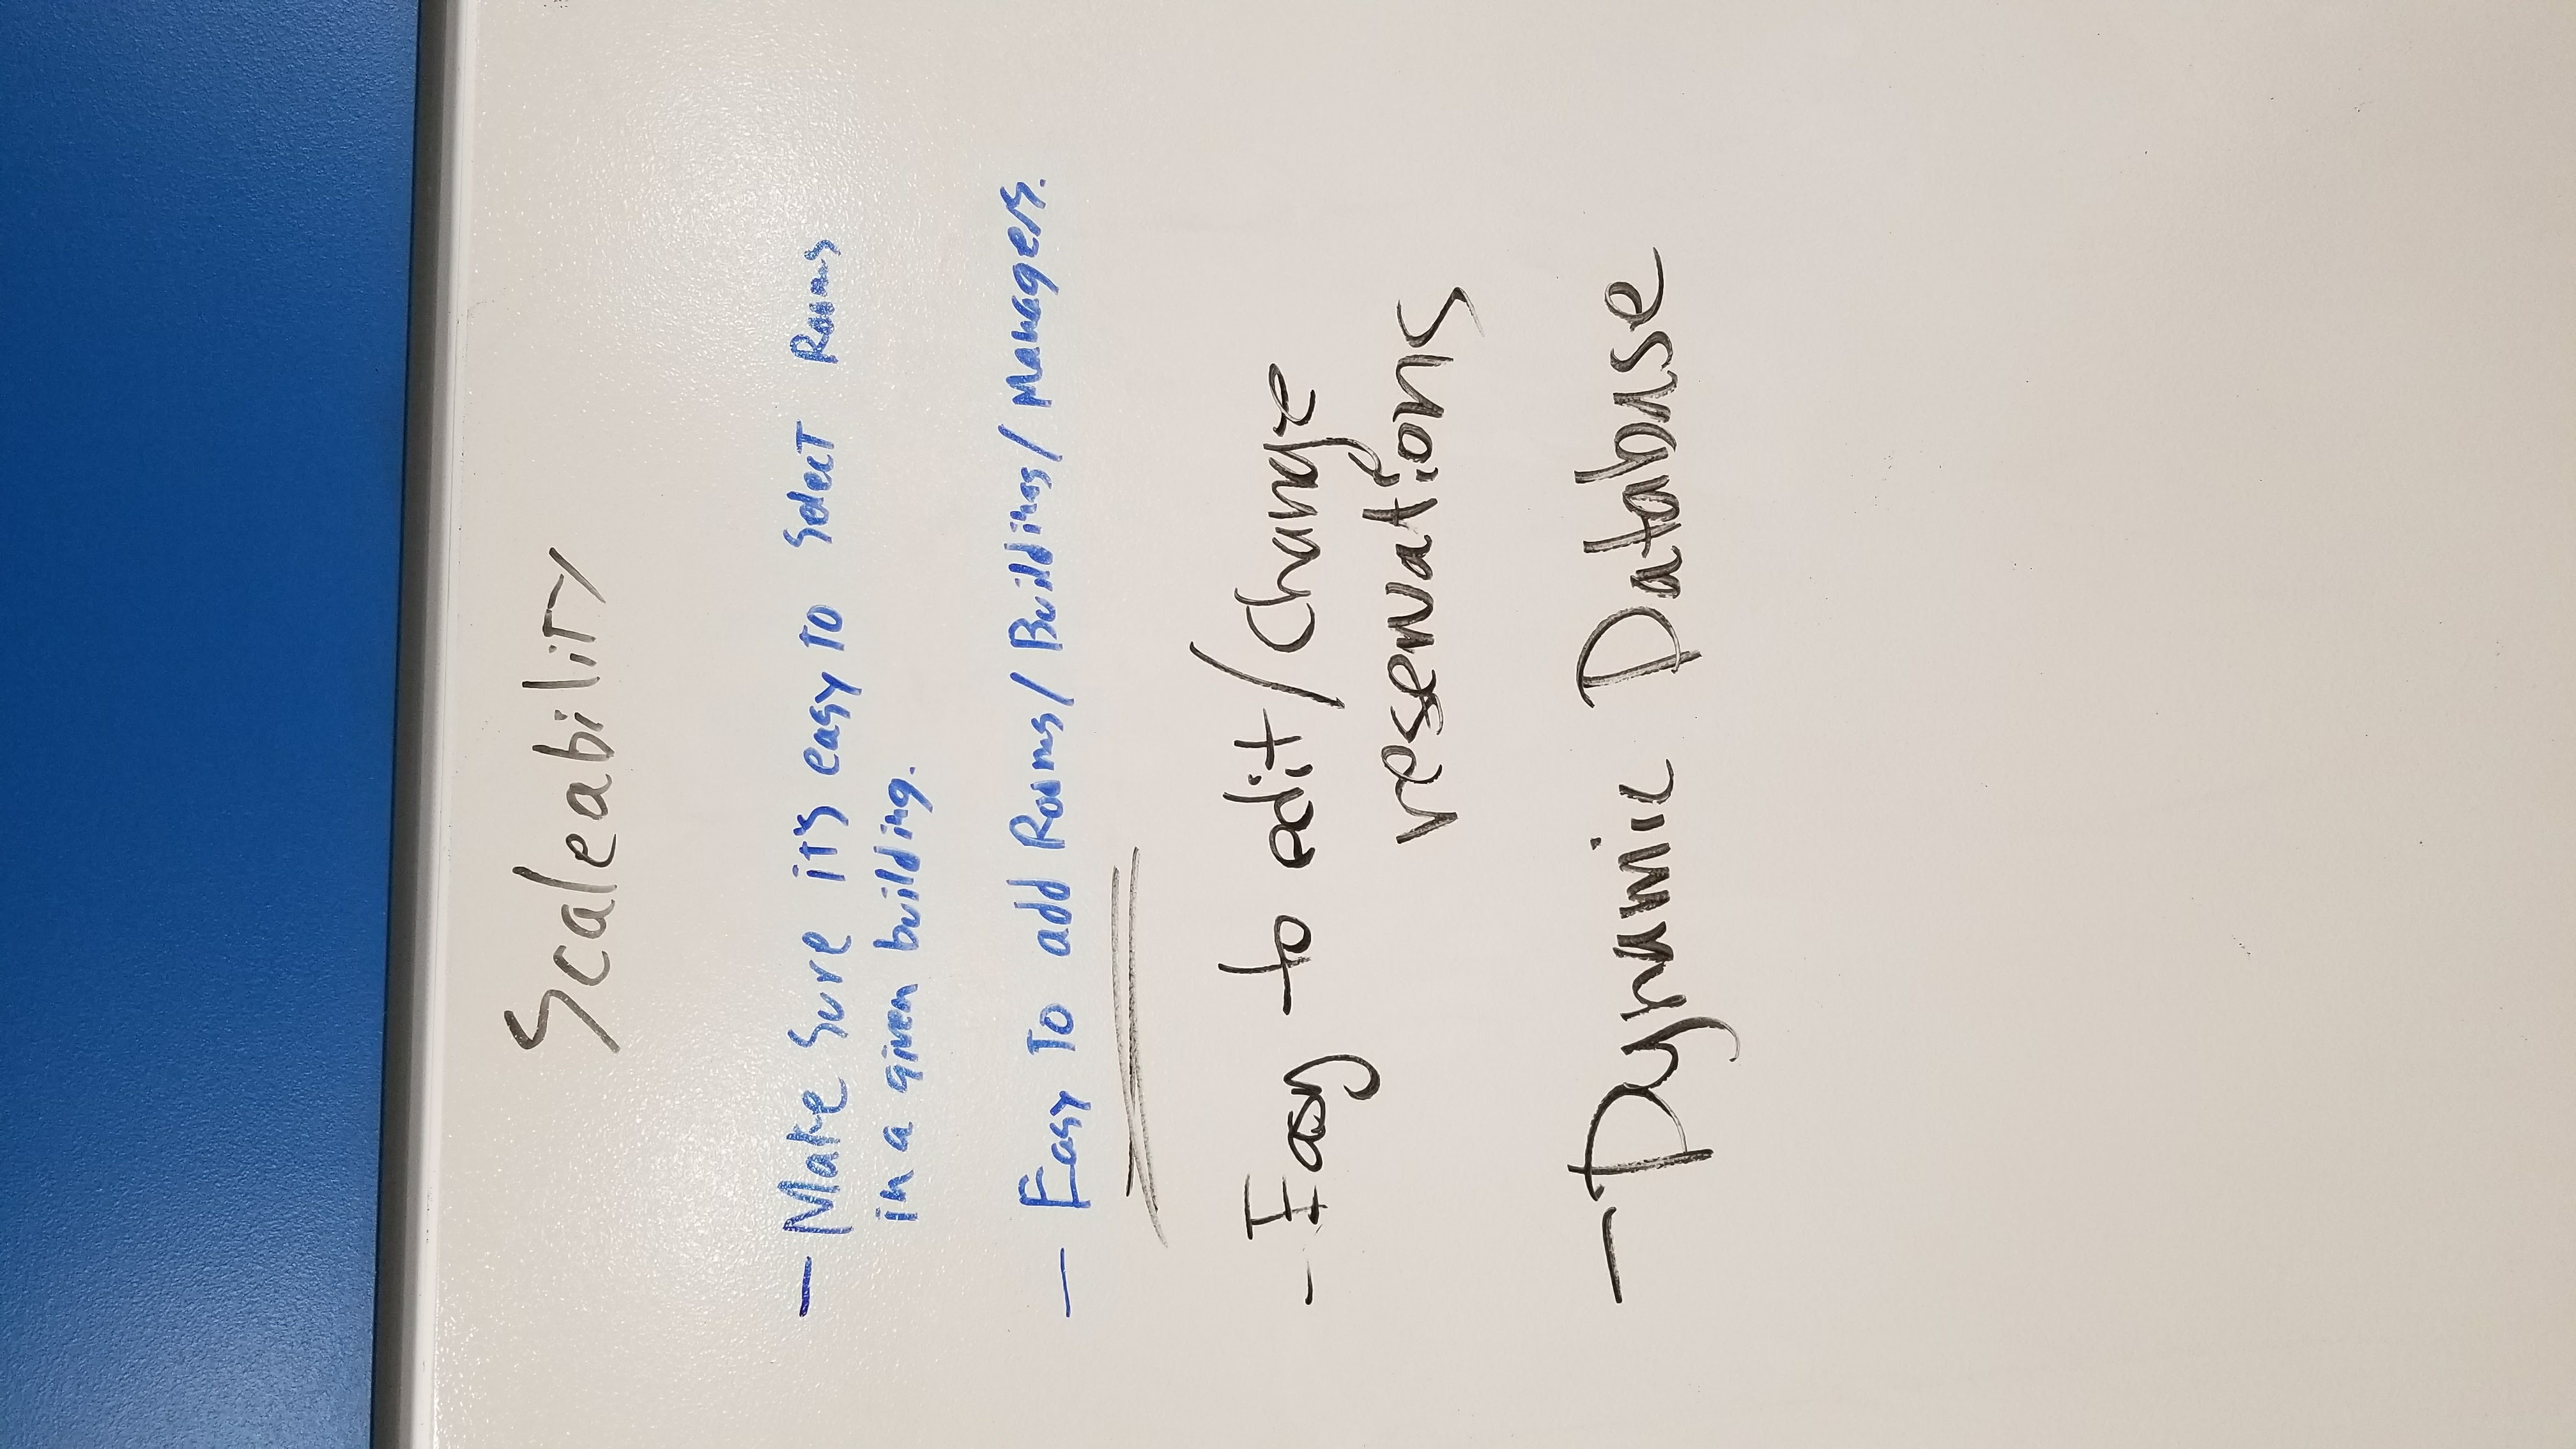 Scaleability
- Make Sure it's easy to Select Rooms
in a given building.
- Easy to add Rooms/Buildings/Managers.
- Easy to edit/Change
reservations
- Dynamic Database